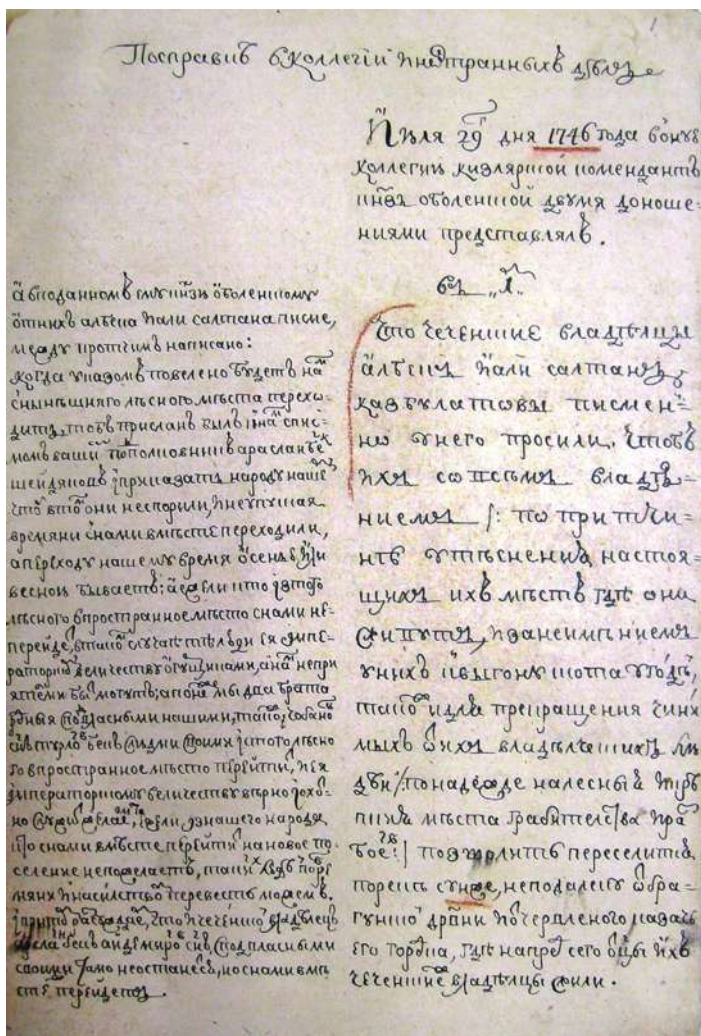 1
По справкѣ в коллегіи иностранныхъ дѣлъ
Июля 29г дня 1746 года в ону
коллегию кизлярской комендантъ
кнзь оболенской двумя доноше-
ниями представлялъ.
въ „1.„
Что чеченские владѣлцы
алъбекъ и али салтанъ
казбулатовы писмен-
но у него просили, чтобъ
ихъ со всемъ владѣ-
ниемъ /: по притчи-
нѣ утѣснения настоя-
щихъ ихъ мѣстъ гдѣ они
живутъ, и за неимѣниемъ
у нихъ и выгону скота угоди,
тако и для прекращения чини
мыхъ ѿ ихъ владѣльческихъ лю
дѣй, понадежде на лесныя и крѣ
пкия мѣста грабителства и раз
бое :/ позволить переселитца
по реке сунже, неподалеку ѿ бра-
гунской дрвни и ѿ червленого казачь
его городка, гдѣ напред сего ѿцы ихъ
чеченские владѣлцы жили.
а в поданномъ ему кнзю оболенскому
от нихъ алъбека и али салтана писме,
между протчимъ написано:
когда указомъ повелено будетъ нам
с нынѣшняго лѣсного мѣста перехо-
дить, то бъ присланъ былъ к нам с пис-
момъ вашимъ подполковникъ арасланбекъ
шейдяковъ и приказать народу нашему
что в том они неспорили, и неупуская
времяни с нами вмѣсте переходили,
а переходу нашему время осенью или
весною бываетъ: а ежели кто из того
лѣсного в пространное мѣсто с нами не-
перейде, в таком случае тѣ люди ея импе-
раторскому величеству ослушниками, а нам непри
ятелми быть могутъ; а понеже мы два брата
с подвласными нашими, також
с людми своими из того лѣсно
го в пространное мѣсто перейти, и ея
императорскому величеству вѣрно и охот-
но служить желаем, и ежели из нашего народа
кто с нами вмѣсте перейти на новое по-
селение непожелаетъ, таких ведь чрез
и насилство перевесть можемъ.
при том обявляем, что и чеченской владѣлецъ
айдемировъ с подвласными
своими тамо неостанетсь, но с нами вмѣ
сте перейдетъ.